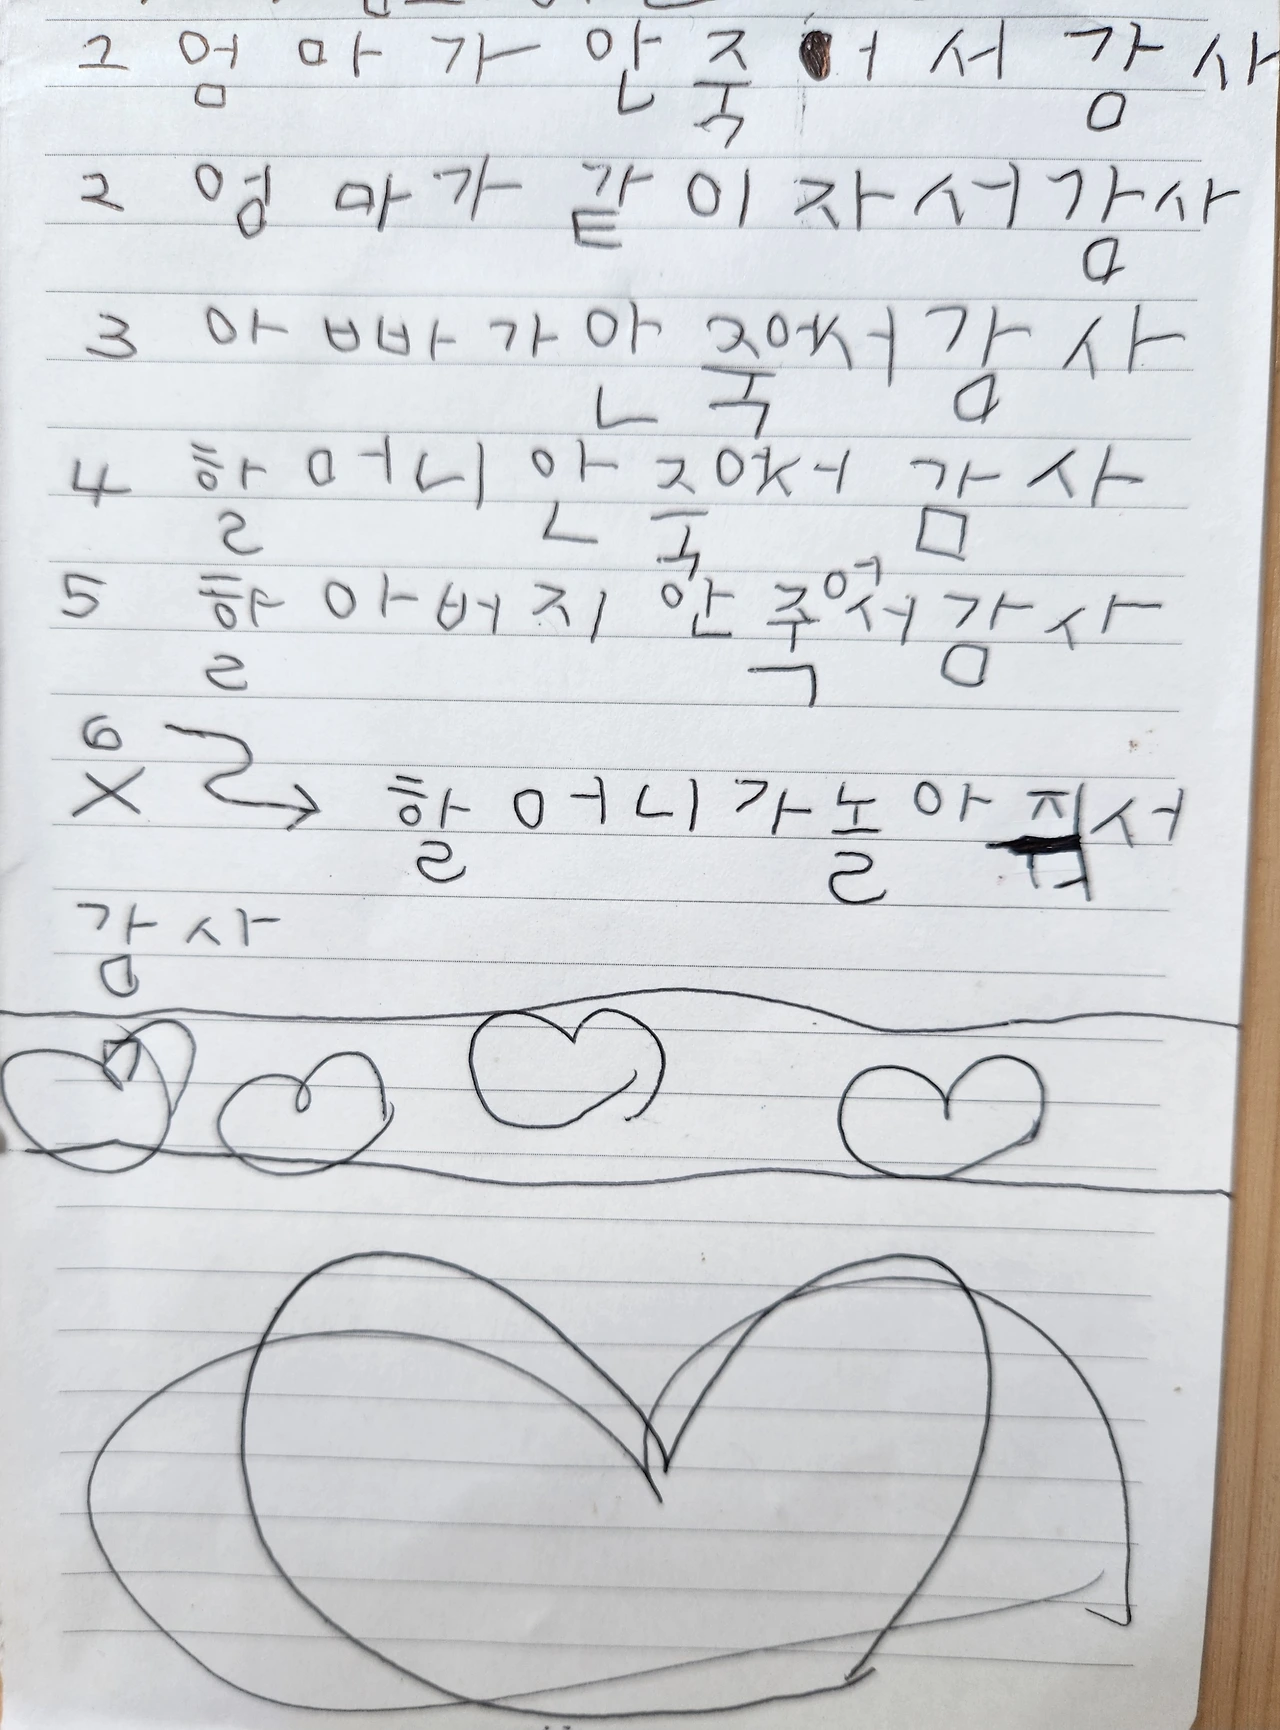 2 엄마가 안죽어서 감사
2 엄마가 같이 자서 감사
3 아빠가 안 죽어서 감사
4 할머니 안 죽어서 감사
5 할아버지 안 죽어서 감사
6
X 할머니가 놀아 서
감사